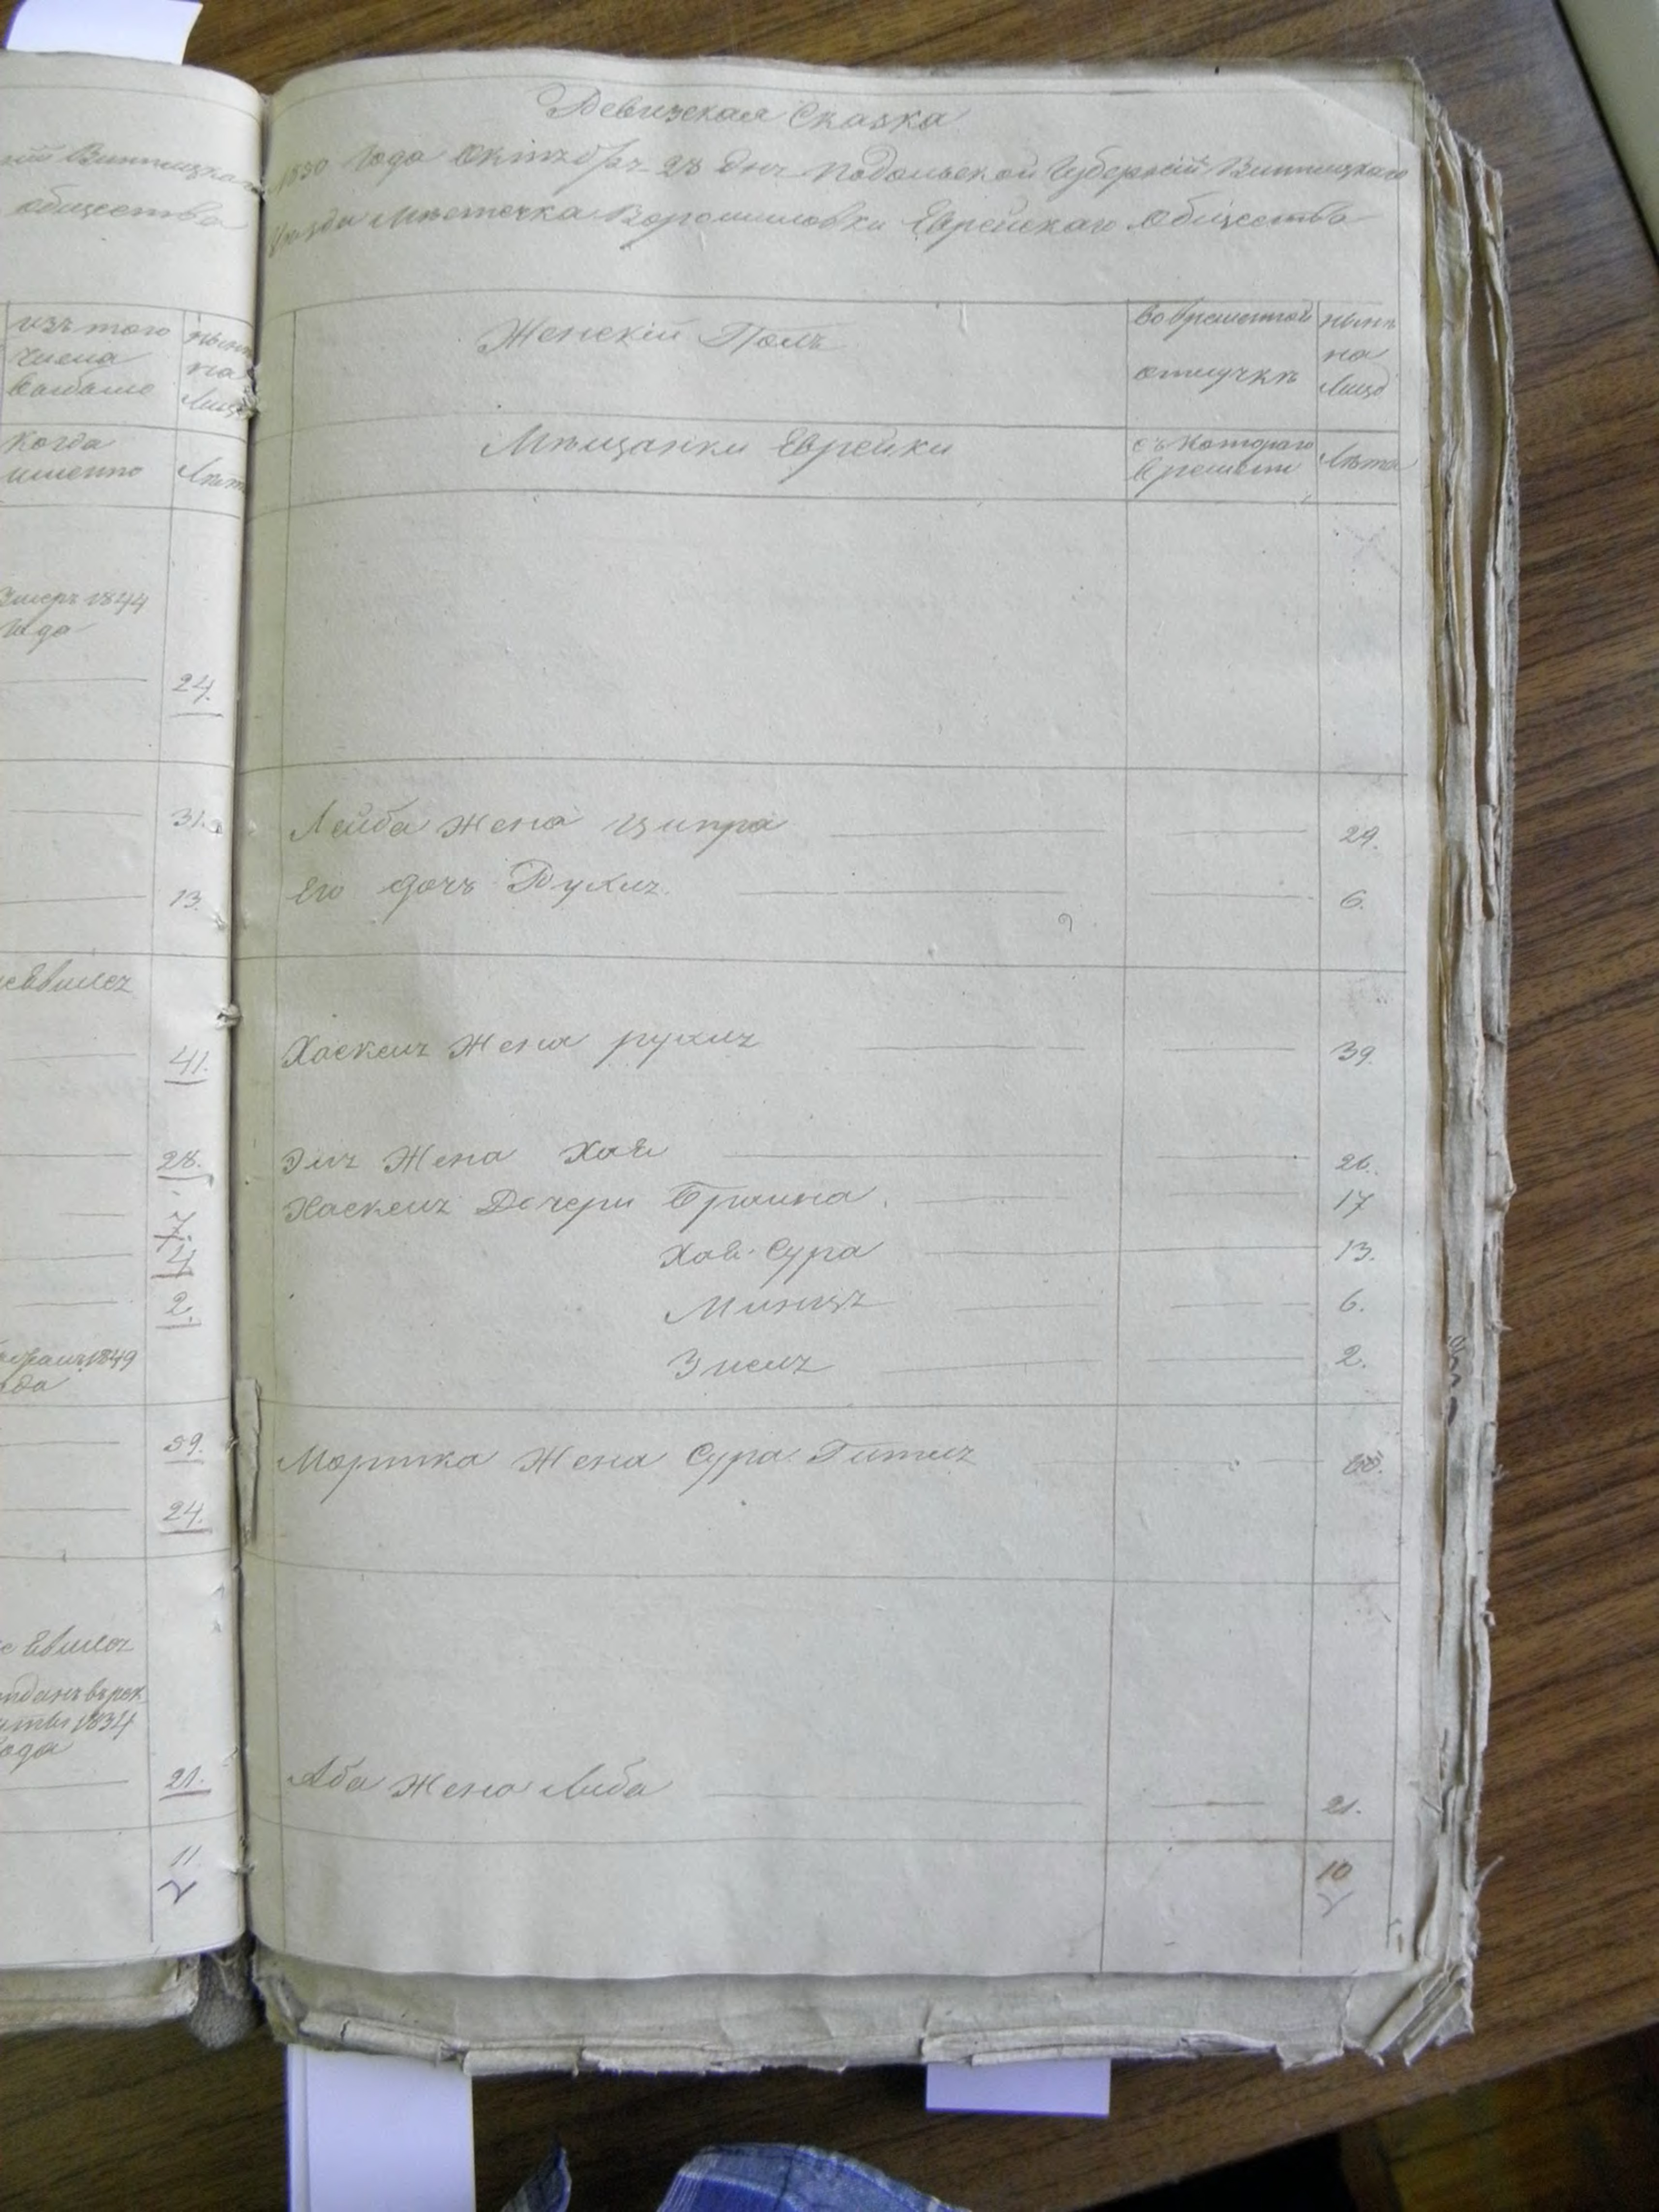 Винницкаго
общества
изъ того
числа
выбыло
ныне
на
лицо
когда
именно
Лета
Умеръ 1844
Года
24.
31.
13.
41.
28.
7.
4
2.
1849
года
59.
24.
1834
года
21.
11
Ревизская Сказка
1850 Года Октября 28 дня Подольской Губерніи Винницкаго
Уезда Местечка Ворошиловки Еврейскаго Общества
Женскій Полъ
во временной
отлучкѣ
нынѣ
на
лицо
Мѣщанки Еврейки
съ котораго
времени
Лѣта
Лейба жена Ципра 29.
Его дочь Рухля 6.
Хаскеля Жена рухля 39.
Эля Жена Хая 26.
Хаскеля Дочери Браина 17
Хая Сура 13.
Минця 6.
Зисля 2.
Мортка Жена Сура Гитля
Аба Жена Либа 21.
10